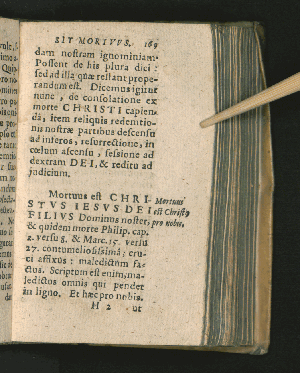 SIT MORTVVS. 169
dam nostram ignominiam.
Possent de his plura dici:
sed ad illa quæ restant prope-
randum est. Dicemus igitur
nunc, de consolatione ex
morte CHRISTI capien-
dâ, item reliquis redemtio-
nis nostræ partibus descensu
ad inferos, resurrectione, in
cœlum ascensu, sessione ad
dextram DEI, & reditu ad
judicium.
Mortuus est CHRI-
STVS IESVS DEI
FILIVS Dominus noster,
& quidem morte Philip. cap.
2. versu 8. & Marc. 15. versu
27. contumeliosissimâ: cru-
ci affixus: maledictum fa-
ctus. Scriptum est enim, ma-
ledictus omnis qui pendet
in ligno. Et hæc pro nobis,
H 2 ut
Mortuus
est Christus
pro nobis.